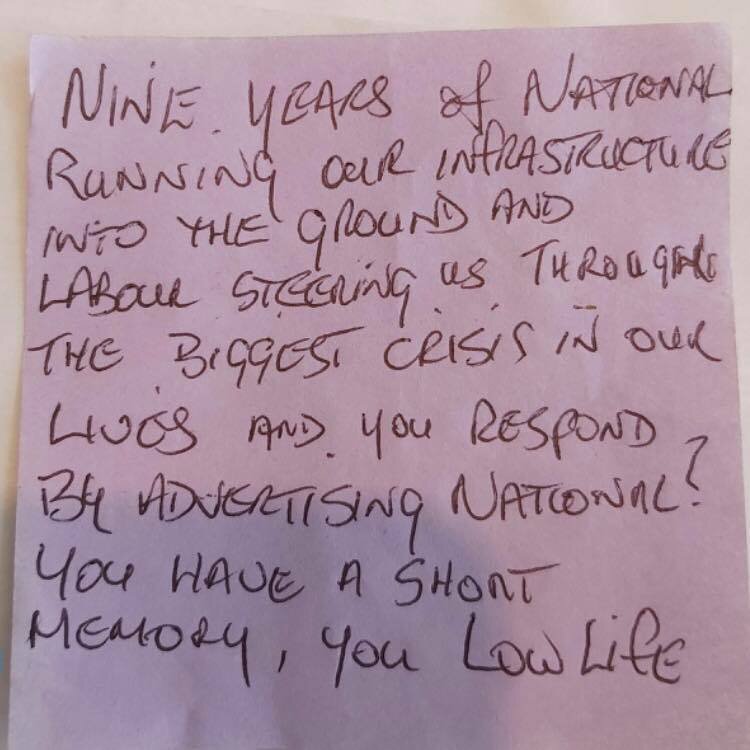 NINE YEARS of NATIONAL
RUNNING OUR INFRASTRUCTURE
INTO THE GROUND AND
LABOUR STEERING US THROUGH
THE BIGGEST CRISIS IN OUR
LIVES AND YOU RESPOND
BY ADVERTISING NATIONAL?
YOU HAVE A SHORT
MEMORY, YOU LOW LIFE